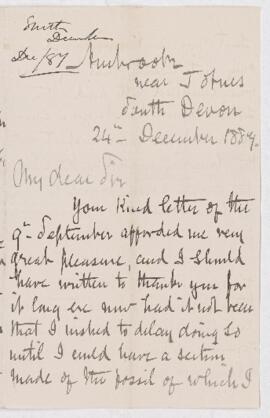 Smith
Decr
Dec/87
Ambrook
near Totnes
South Devon
24th December 1887.
My dear Sir
Your kind letter of the
9th September afforded me very
great pleasure, and I should
have written to thank you for
it long ere now had it not been
that I wished to delay doing so
until I could have a section
made of the fossil of which I